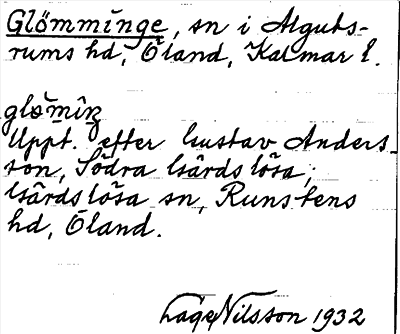 Glömminge, sn i Alguts-
rums hd, Öland, Kalmar l.
glö̀mìŋ
Uppt. efter Gustav Anders-
son, Södra Gärdslösa,
Gärdslösa sn, Runstens
hd, Öland.
Lage Nilsson 1932